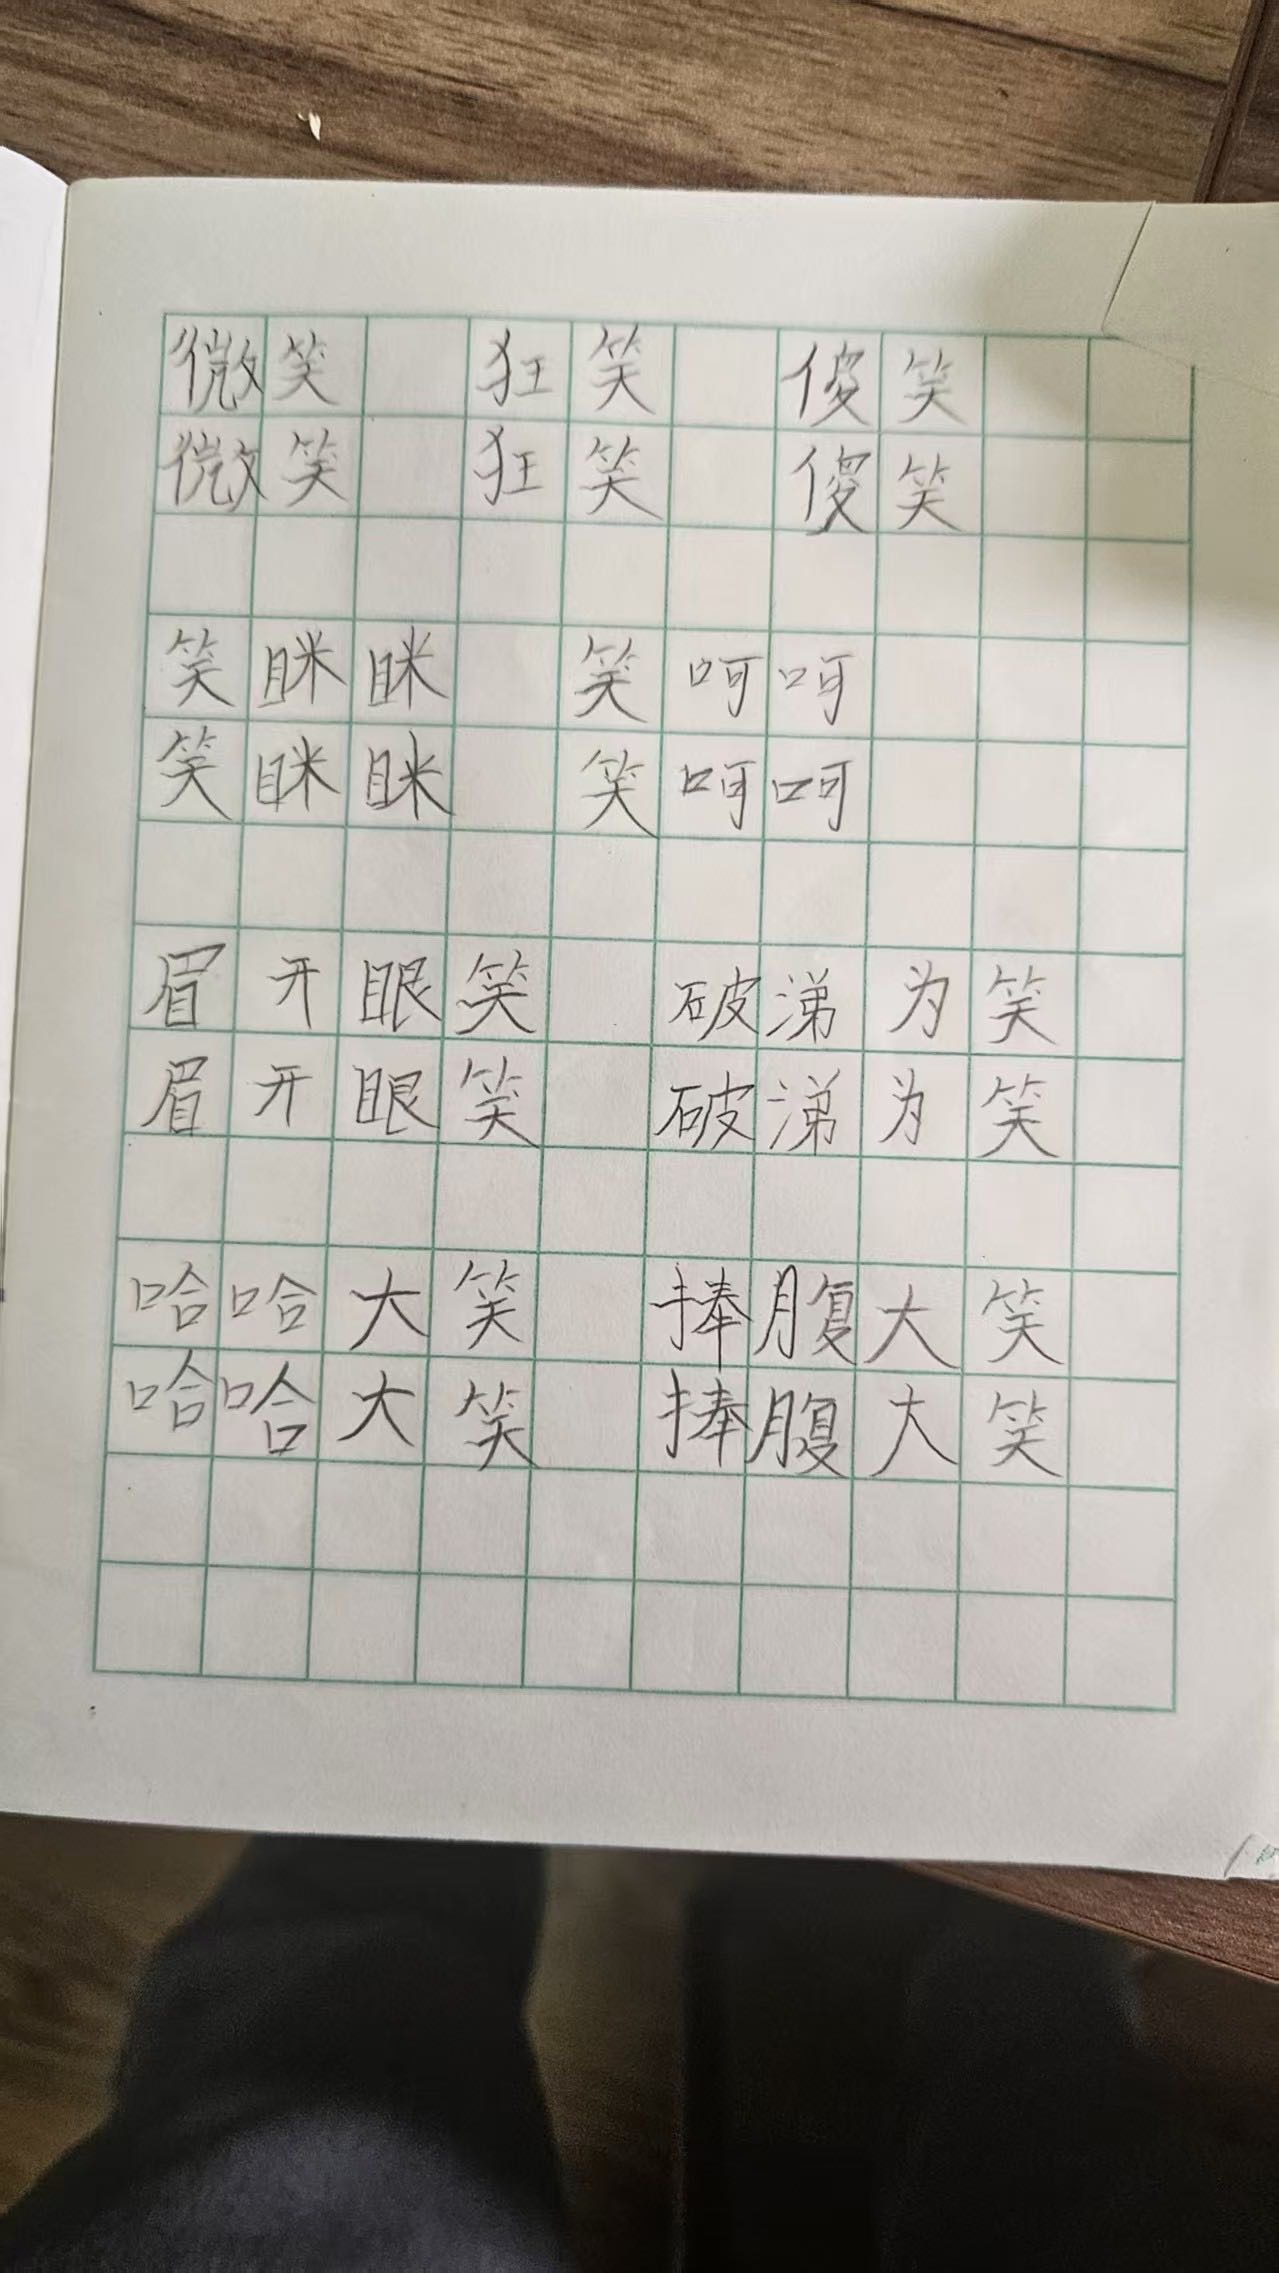 微笑 狂笑 傻笑
微笑 狂笑 傻笑
笑眯眯 笑呵呵
笑眯眯 笑呵呵
眉开眼笑 破涕为笑
眉开眼笑 破涕为笑
哈哈大笑 捧腹大笑
哈哈大笑 捧腹大笑